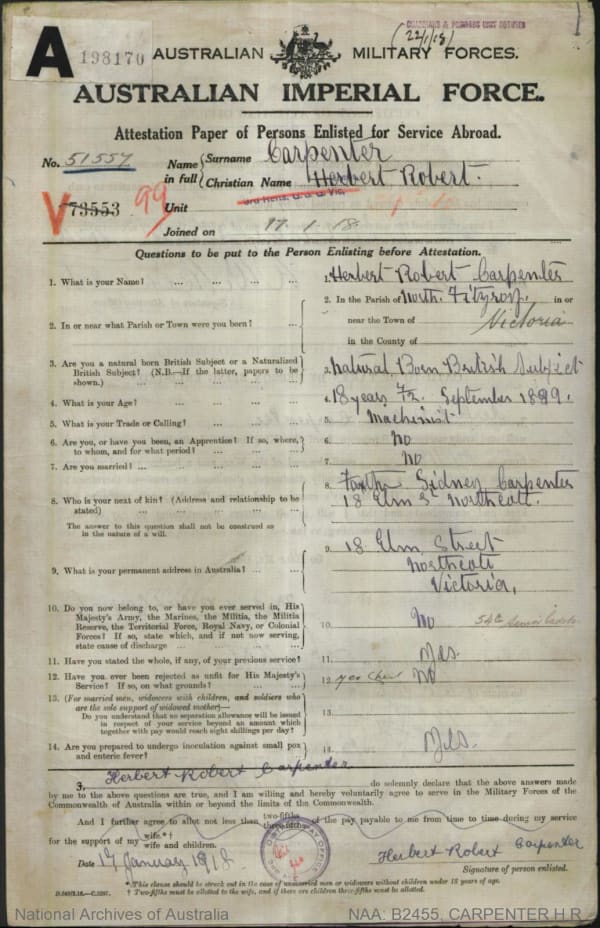 (22/1/18)
A 198170
AUSTRALIAN MILITARY FORCES.
AUSTRALIAN IMPERIAL FORCE.
Attestation Paper of Persons Enlisted for Service Abroad.
No. 51557 Name in full { Surname Carpenter
Christian Name Herbert Robert.
V 73553 99 Unit
Joined on 17.1.18.
Questions to be put to the Person Enlisting before Attestation.
1. What is your Name? ... ... ... ... 1. Herbert Robert Carpenter
2. In or near what Parish or Town were you born? ... 2. In the Parish of North. Fitzroy. in or
near the Town of Victoria
in the County of
3. Are you a natural born British Subject or a Naturalized British Subject? (N.B.—If the latter, papers to be shown.) ... 3. Natural Born British Subject
4. What is your Age? ... ... ... ... 4. 18 years September 1899.
5. What is your Trade or Calling? ... ... ... 5. Machinist
6. Are you, or have you been, an Apprentice? If so, where, to whom, and for what period? ... ... 6. No
7. Are you married? ... ... ... ... 7. No
8. Who is your next of kin? (Address and relationship to be stated) ... ... ... ... 8. Sidney Carpenter
18 Elm St Northcote.
The answer to this question shall not be construed as in the nature of a will.
9. What is your permanent address in Australia? ... ... 9. 18. Elm Street
Northcote
Victoria,
10. Do you now belong to, or have you ever served in, His Majesty's Army, the Marines, the Militia, the Militia Reserve, the Territorial Force, Royal Navy, or Colonial Forces? If so, state which, and if not now serving, state cause of discharge ... ... ... 10. No 54th Senior Cadets
11. Have you stated the whole, if any, of your previous service? 11. Yes.
12. Have you ever been rejected as unfit for His Majesty's Service? If so, on what grounds? ... ... 12. yes Chest No
13. (For married men, widowers with children, and soldiers who are the sole support of widowed mother)—
Do you understand that no separation allowance will be issued in respect of your service beyond an amount which together with pay would reach eight shillings per day? 13.
14. Are you prepared to undergo inoculation against small pox and enteric fever? ... ... ... 14. Yes.
Herbert Robert Carpenter
I, do solemnly declare that the above answers made
by me to the above questions are true, and I am willing and hereby voluntarily agree to serve in the Military Forces of the
Commonwealth of Australia within or beyond the limits of the Commonwealth.
And I further agree to allot not less than two-fifths three-fifths of the pay payable to me from time to time during my service
for the support of my wife.*† wife and children.
Date 17 January 1918 Herbert Robert Carpenter
Signature of person enlisted.
* This clause should be struck out in the case of unmarried men or widowers without children under 18 years of age.
† Two-fifths must be allotted to the wife, and if there are children three-fifths must be allotted.
National Archives of Australia NAA: B2455, CARPENTER H R